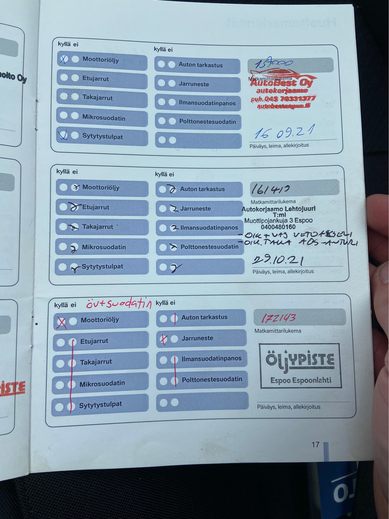 kyllä ei
kyllä ei
Moottoriöljy
Auton tarkastus
Etujarrut
Jarruneste
Takajarrut
Ilmansuodatinpanos
Mikrosuodatin
Polttonestesuodatin
Sytytystulpat
AutoBest Oy
autokorjaamo
puh.045 78331377
16.09.21
Päiväys, leima, allekirjoitus
kyllä ei
kyllä ei
Moottoriöljy
Auton tarkastus
161413
Etujarrut
Jarruneste
Matkamittarilukema
Takajarrut
Ilmansuodatinpanos
Autokorjaamo Lehtojuuri
T:mi
Muottipojankuja 3 Espoo
0400480160
Mikrosuodatin
Polttonestesuodatin
Sytytystulpat
29.10.21
Päiväys, leima, allekirjoitus
kyllä ei
kyllä ei
Moottoriöljy
Auton tarkastus
172143
Etujarrut
Jarruneste
Matkamittarilukema
Takajarrut
Ilmansuodatinpanos
ÖLJYPISTE
Mikrosuodatin
Polttonestesuodatin
Espoo Espoonlahti
Sytytystulpat
Päiväys, leima, allekirjoitus
17